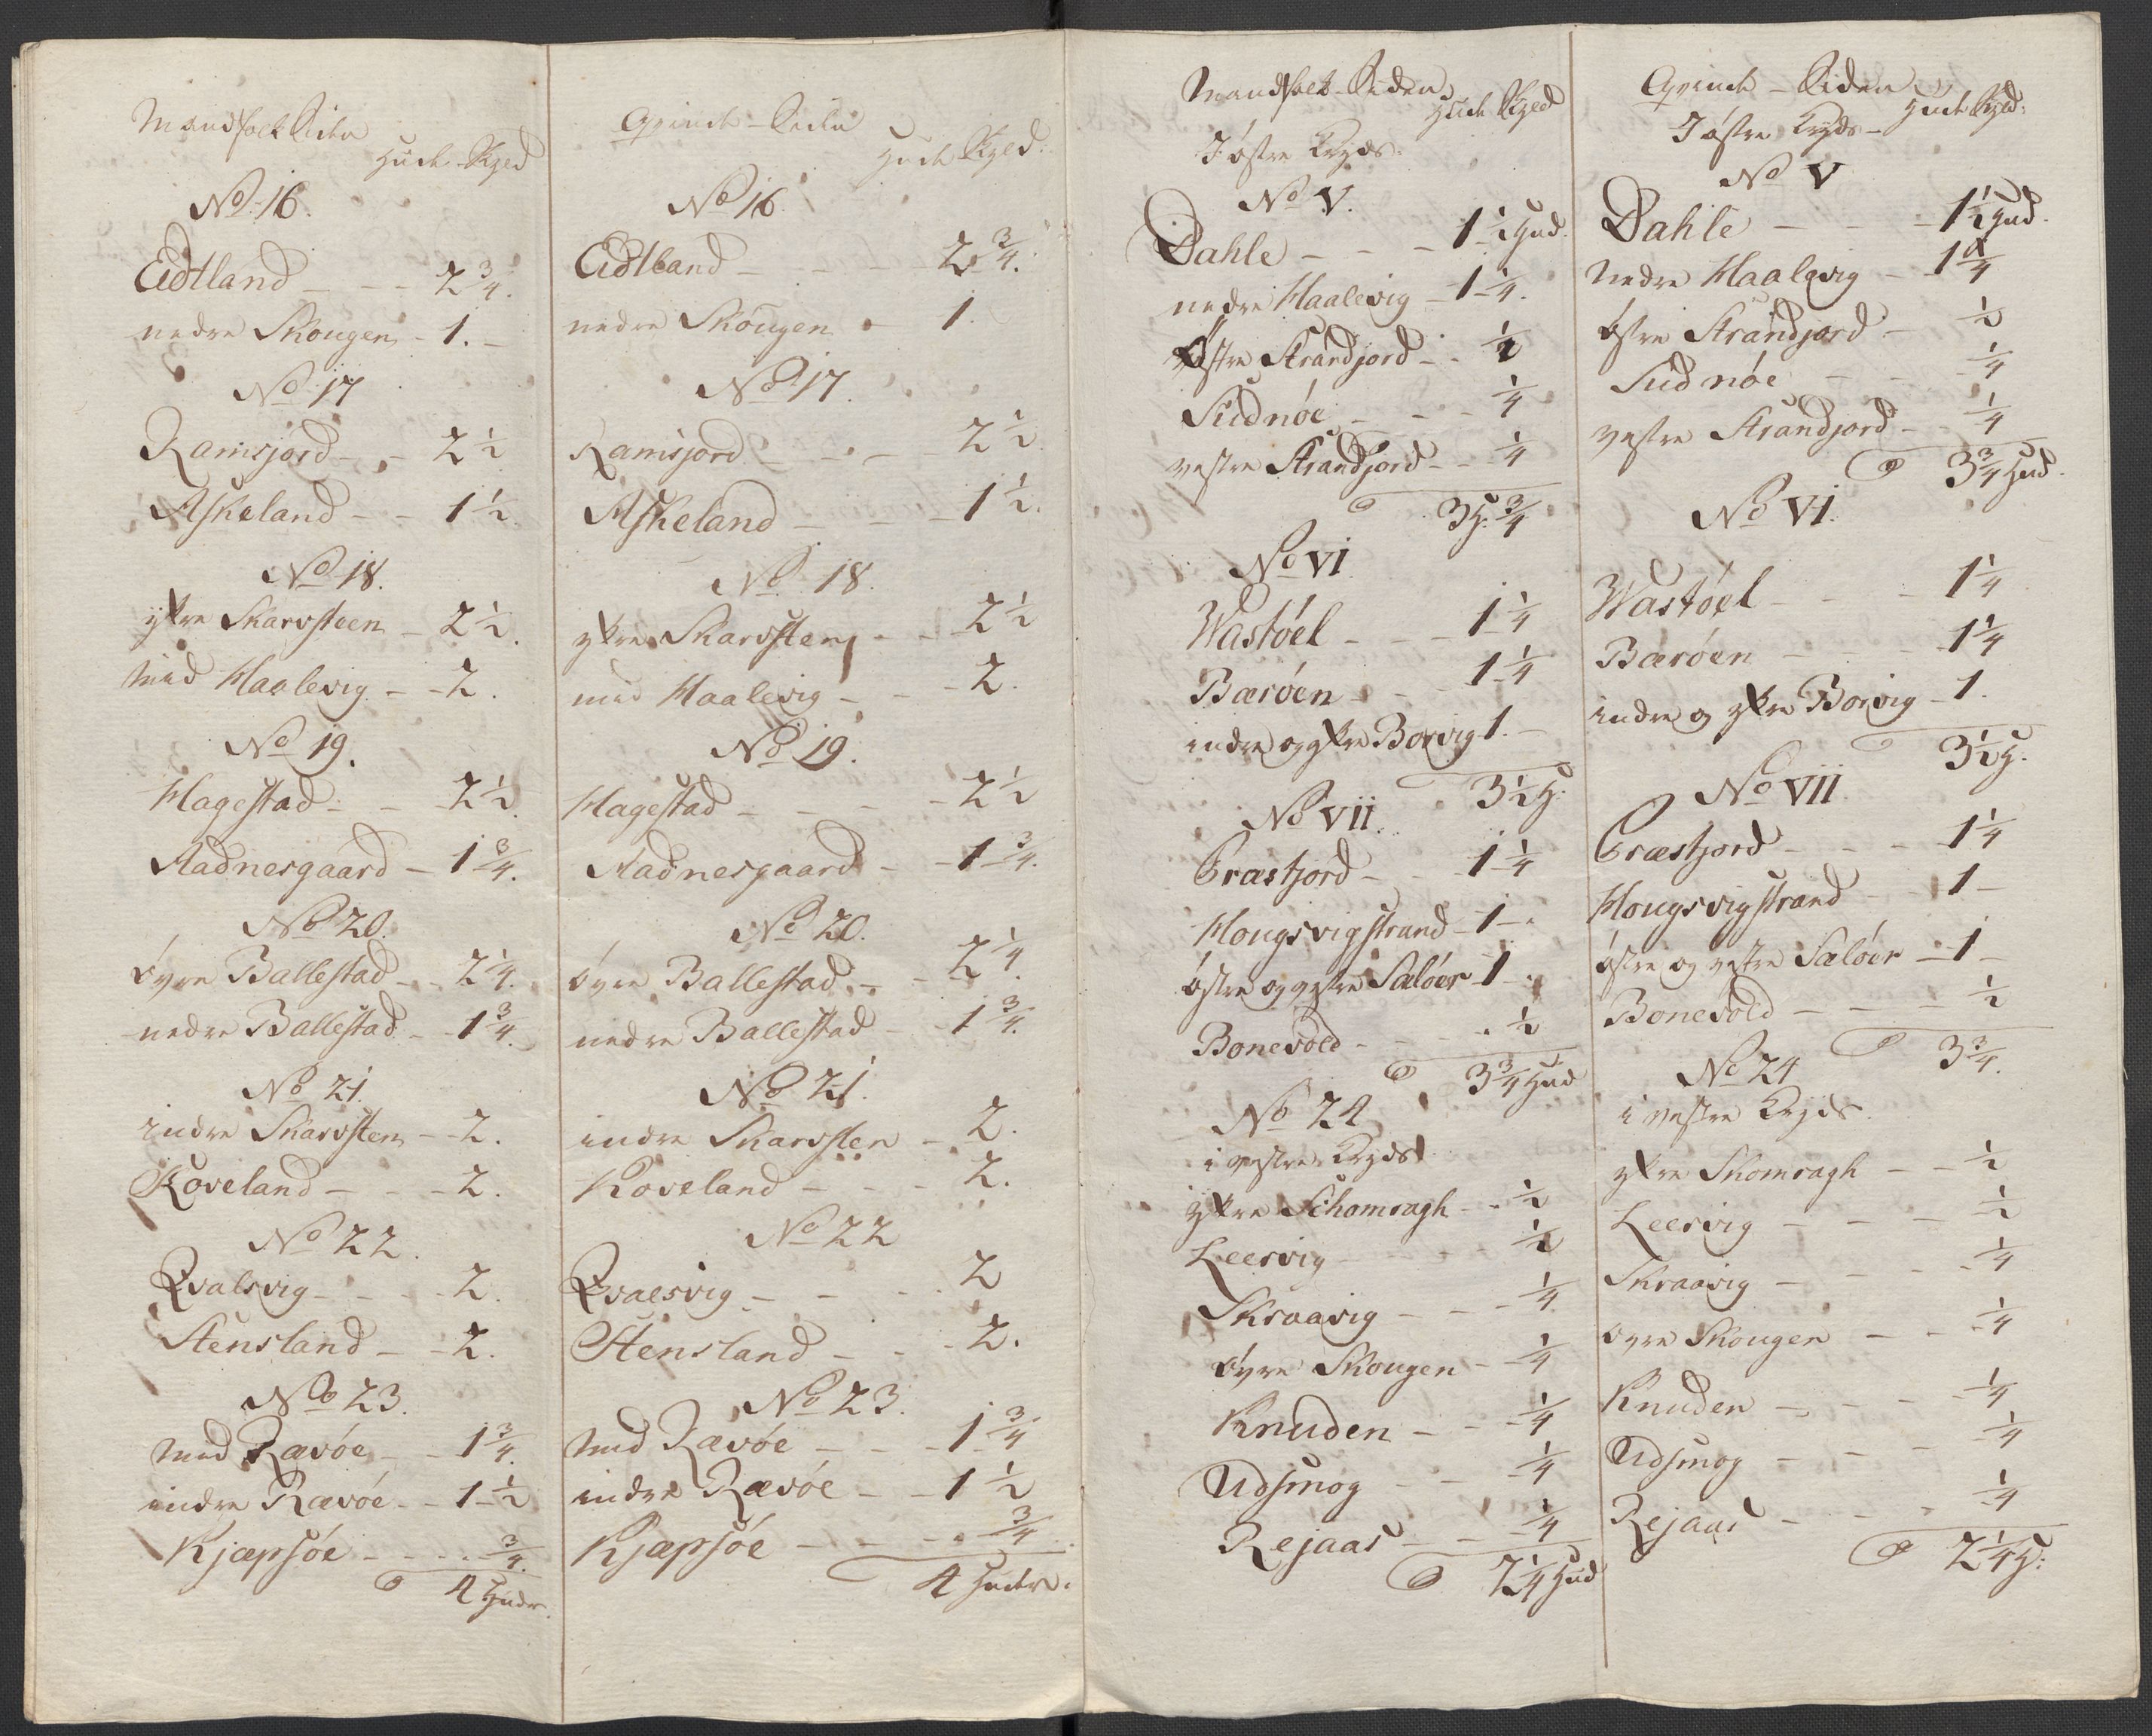 Mandfolk Siden
Hude Skyld
No 16.
Eidtland - - - 2 3/4.
nedre Skougen - 1. -
No 17
Ramsjord - - 2 1/2
Askeland - - 1 1/2.
No 18.
ytre Skarvsteen - 2 1/2.
med Haalevig - - 2.
No 19.
Hagestad - - 2 1/2.
Aadnesgaard - 1 3/4.
No 20.
övre Ballestad - - 2 1/4.
nedre Ballestad - - 1 3/4.
No 21.
indre Skarvsten - - 2.
Koveland - - - 2.
No 22.
Qvalsvig - - - 2.
Stensland - - 2.
No 23.
med Rævöe - - 1 3/4.
indre Rævöe - - 1 1/2
Kjæpsöe - - - - 3/4.
4 Huder.
Qvinde - Siden
Hude Skyld.
No 16.
Eidtland - - - 2 3/4.
nedre Skougen - 1.
No 17.
Ramsjord - - - 2 1/2.
Askeland - - - 1 1/2.
No 18.
ytre Skarvsten - - 2 1/2
med Haalevig - - - 2.
No 19.
Hagestad - - - - 2 1/2
Aadnesgaard - - 1 3/4.
No 20.
övre Ballestad - - 2 1/4.
nedre Ballestad - - 1 3/4.
No 21.
indre Skarvsten - 2.
Koveland - - - - 2.
No 22
Qvalsvig - - - - 2
Stensland - - - 2.
No 23.
med Rævöe - - - 1 3/4
indre Rævöe - - 1 1/2
Kjæpsöe - - - - 3/4
4 Huder.
Mandfolk - Siden
Hude Skyld
I östre Kryds.
No V.
Dahle - - - 1 1/2 Hud.
nedre Haalevig - 1 1/4.
östre Strandjord - - 1/2
Sudnöe - - - 1/4
vestre Strandjord - - 1/4
3 H. 3/4
No VI
Wastöel - - - 1 1/4
Bæröen - - 1 1/4
indre og ytre Borvig 1. -
3 1/2 H.
No VII.
Præstjord - - 1 1/4
Hougsvigstrand - 1 -
östre og vestre Sælöer 1 -
Bonevold - - - 1/2
3 3/4 Hud
No 24
i vestre Kryds
ytre Schomragh - - 1/2
Leervig - - 1/2
Skraavig - - - 1/4
övre Skougen - - 1/4
Knuden - - - 1/4
Udsmog - - 1/4
Rejaas - - 1/4
2 1/4 Hud
Qvinde - Siden
Hude Skyld.
I östre Kryds -
No V
Dahle - - - 1 1/2 Hud.
nedre Haalevig - 1 1/4
östre Strandjord - 1/2
Sudnöe - - - 1/4
vestre Strandjord - - 1/4
3 3/4 Hud.
No VI.
Wastöel - - - 1 1/4
Bæröen - - - 1 1/4
indre og ytre Borvig - 1.
3 1/2 H.
No VII
Præstjord - - - 1 1/4
Hougsvigstrand - - 1 -
östre og vestre Sælöer - 1 -
Bonevold - - - 1/2
3 3/4.
No 24
i vestre Kryds.
ytre Skomragh - - 1/2
Leervig - - - 1/2
Skraavig - - - 1/4
övre Skougen - - 1/4
Knuden - - - 1/4
Udsmog - - - 1/4
Rejaas - - - 1/4
2 1/4 H: